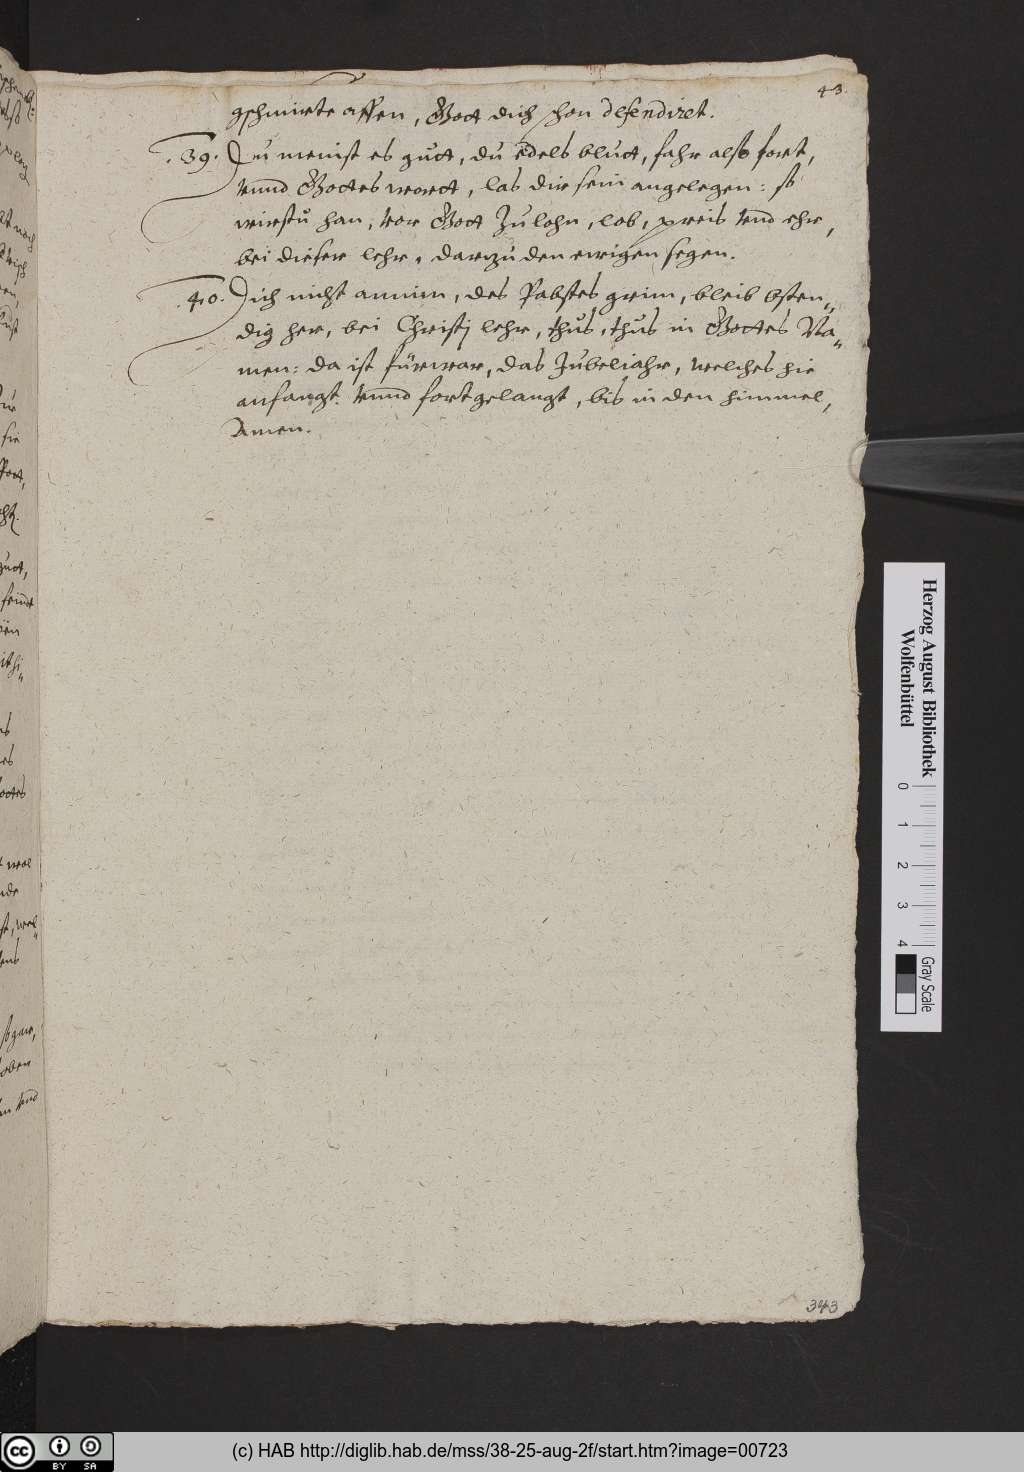 43
gschmirte affen, Gott dich schon defendiret.
.39. Du meinst es gutt, du edels blutt, fahr also fort,
vnnd Gottes wortt, las dir sein angelegen: so
wirstu han, vor Gott zu lohn, lob, preis vnd ehr,
bei dieser lehr, darzu den ewigen segen.
.40. Dich nicht annim, des Pabstes grim, bleib bsten„
dig her, bei Christi lehr, thus, thus in Gottes Na„
men: da ist fürwar, das Jubeljahr, welches hie
anfangt vnnd fortgelangt, bis in den himmel,
Amen.
343
Herzog August Bibliothek
Wolfenbüttel
0 1 2 3 4
Gray Scale
(c) HAB http://diglib.hab.de/mss/38-25-aug-2f/start.htm?image=00723
cc BY SA